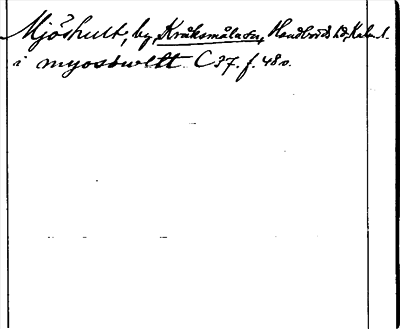 Mjöshult, by, Kråksmåla sn, Handbörds hd, Kalm. l.
i myoswltt C 37. f. 48 o.